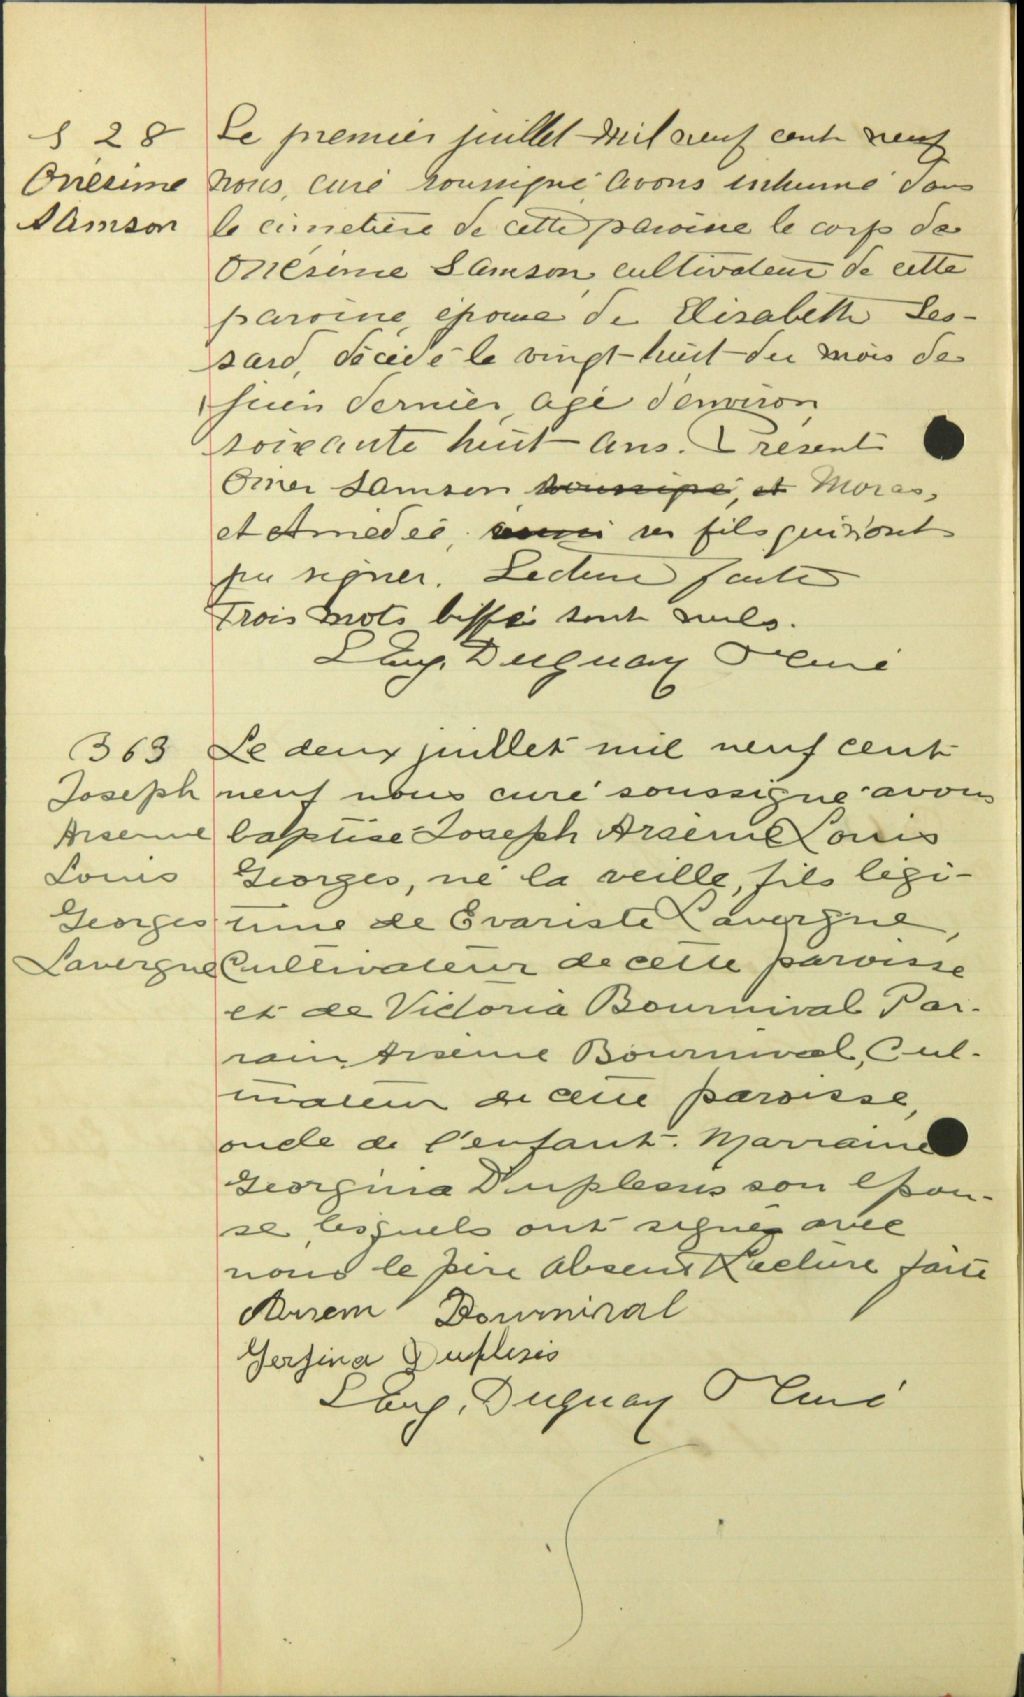 S 28
Onésime
Samson
Le premier juillet mil neuf cent neuf
nous, curé soussigné avons inhumé dans
le cimetière de cette paroisse le corps de
Onésime Samson, cultivateur de cette
paroisse, époux de Elisabeth Les-
sard, décédé le vingt-huit du mois de
juin dernier, agé d'environ
soixante huit ans. Présent
Omer Samson soussigné, et Moras,
et Amédée, aussi ses fils qui n'ont
pu signer. Lecture faite
Trois mots biffés sont nuls.
L Eug. Duguay Ptre Curé
B 63
Joseph
Arsenne
Louis
Georges
Lavergne
Le deux juillet mil neuf cent
neuf nous curé soussigné avons
baptisé Joseph Arsenne Louis
Georges, né la veille, fils légi-
time de Evariste Lavergne,
Cultivateur de cette paroisse
et de Victoria Bournival Par-
rain Arsenne Bournival, Cul-
tivateur de cette paroisse,
oncle de l'enfant. Marraine
Georgina Duplessis son épou-
se, lesquels ont signés avec
nous le père absent Lecture faite
Arsem Bournival
Gergina Duplesis
L Eug. Duguay Ptre Curé